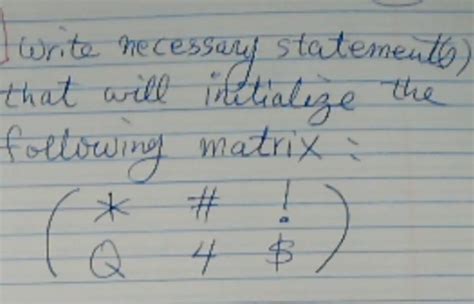 Write necessary statement(s)
that will initialize the
following matrix :
* # !
Q 4 $